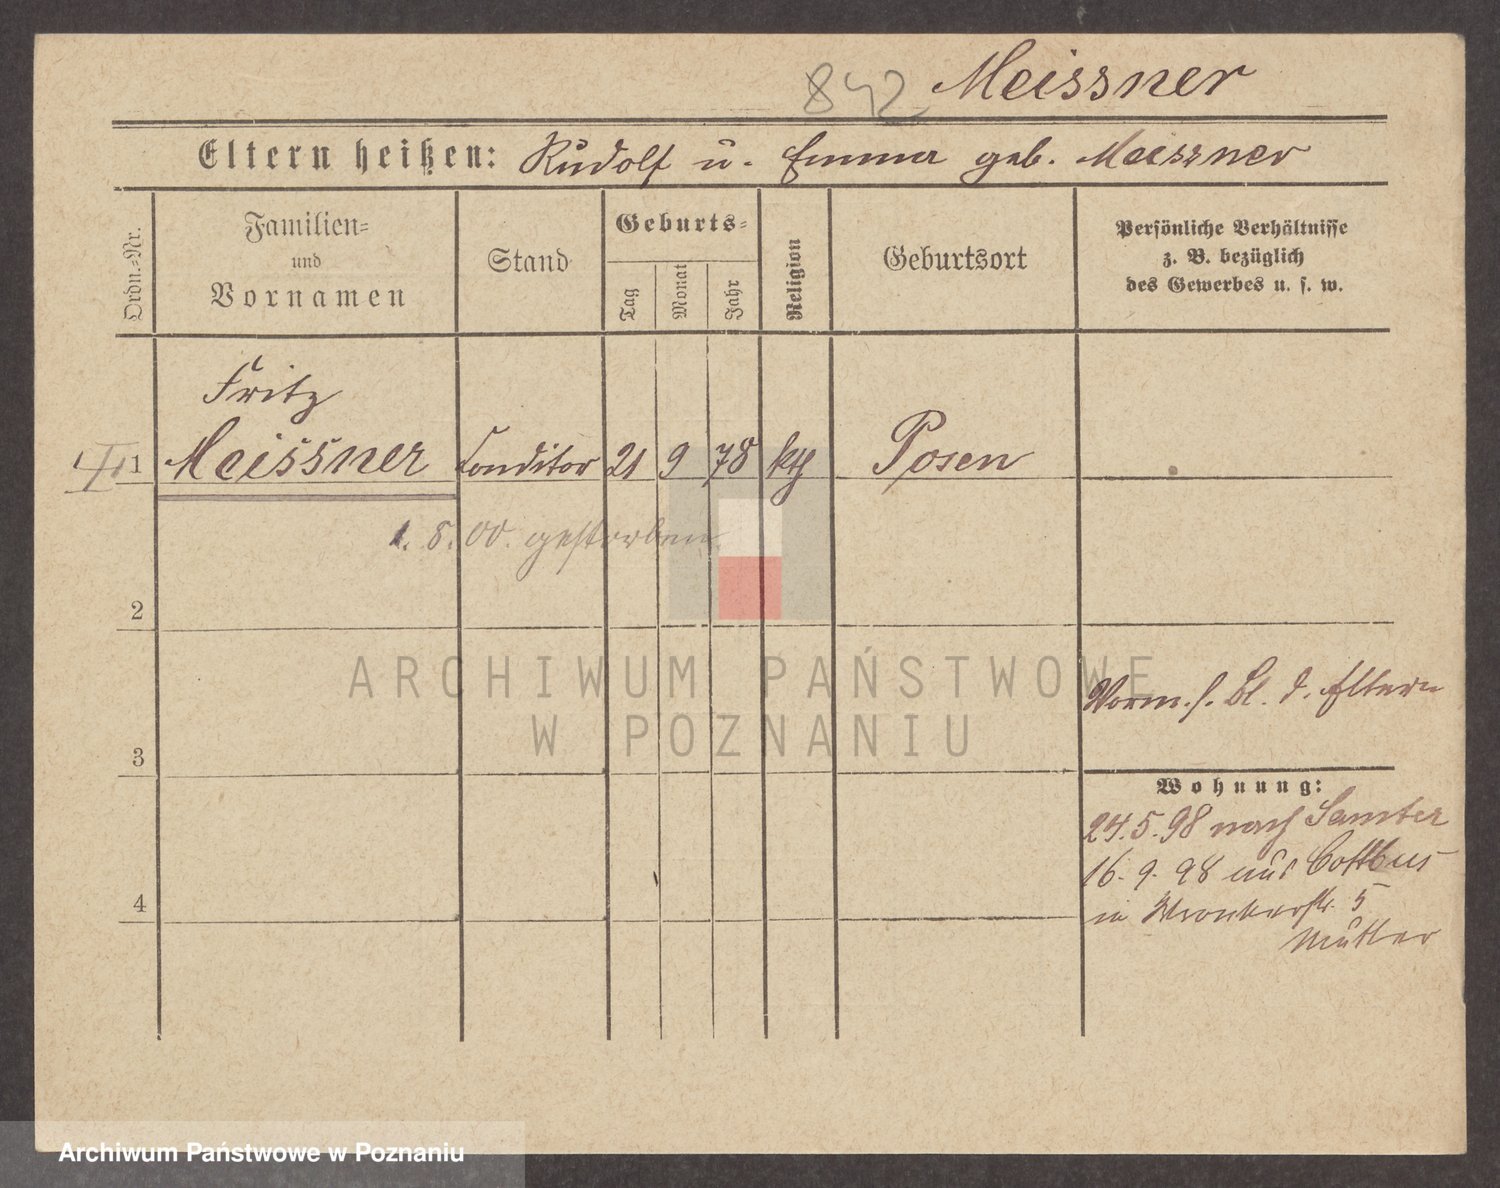 842 Meissner
Eltern heißen: Rudolf u. Emma geb. Meissner
Ordn.-Nr.
Familien-
und
Vornamen
Stand
Geburts-
Tag
Monat
Jahr
Religion
Geburtsort
Persönliche Verhältnisse
z. B. bezüglich
des Gewerbes u. s. w.
Fritz
1 Meissner Conditor 21 9 78 kth Posen
1. 8. 00. gestorben
2
Vorm. s. Bl. d. Eltern
3
Wohnung:
24.5.98 nach Samter
16. 9. 98 aus Cottbus
in Wronkerstr. 5
Mutter
4
ARCHIWUM PAŃSTWOWE
W POZNANIU
Archiwum Państwowe w Poznaniu